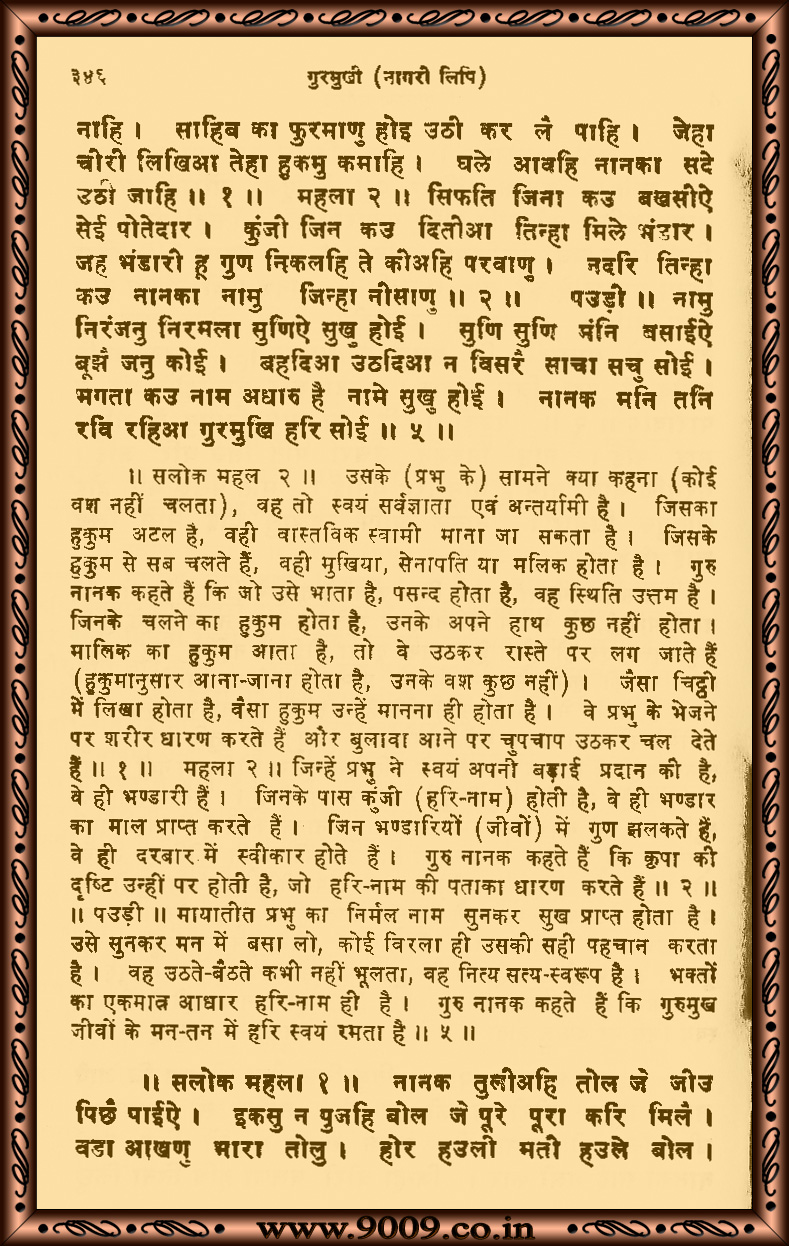 ३४६ गुरमुखी (नागरी लिपि)
नाहि । साहिब का फुरमाणु होइ उठी कर लै पाहि । जेहा
चीरी लिखिआ तेहा हुकमु कमाहि । घले आवहि नानका सदे
उठी जाहि ॥ १ ॥ महला २ ॥ सिफति जिना कउ बखसीऐ
सेई पोतेदार । कुंजी जिन कउ दितीआ तिन्हा मिले भंडार ।
जह भंडारी हू गुण निकलहि ते कीअहि परवाणु । नदरि तिन्हा
कउ नानका नामु जिन्हा नीसाणु ॥ २ ॥ पउड़ी ॥ नामु
निरंजनु निरमला सुणिऐ सुखु होई । सुणि सुणि मंनि वसाईऐ
बूझै जनु कोई । बहदिआ उठदिआ न विसरै साचा सचु सोई ।
भगता कउ नाम अधारु है नामे सुखु होई । नानक मनि तनि
रवि रहिआ गुरमुखि हरि सोई ॥ ५ ॥
॥ सलोक महल २ ॥ उसके (प्रभु के) सामने क्या कहना (कोई
वश नहीं चलता), वह तो स्वयं सर्वज्ञाता एवं अन्तर्यामी है । जिसका
हुकुम अटल है, वही वास्तविक स्वामी माना जा सकता है । जिसके
हुकुम से सब चलते हैं, वही मुखिया, सेनापति या मलिक होता है । गुरु
नानक कहते हैं कि जो उसे भाता है, पसन्द होता है, वह स्थिति उत्तम है ।
जिनके चलने का हुकुम होता है, उनके अपने हाथ कुछ नहीं होता ।
मालिक का हुकुम आता है, तो वे उठकर रास्ते पर लग जाते हैं
(हुकुमानुसार आना-जाना होता है, उनके वश कुछ नहीं) । जैसा चिट्ठी
में लिखा होता है, वैसा हुकुम उन्हें मानना ही होता है । वे प्रभु के भेजने
पर शरीर धारण करते हैं और बुलावा आने पर चुपचाप उठकर चल देते
हैं ॥ १ ॥ महला २ ॥ जिन्हें प्रभु ने स्वयं अपनी बड़ाई प्रदान की है,
वे ही भण्डारी हैं । जिनके पास कुंजी (हरि-नाम) होती है, वे ही भण्डार
का माल प्राप्त करते हैं । जिन भण्डारियों (जीवों) में गुण झलकते हैं,
वे ही दरबार में स्वीकार होते हैं । गुरु नानक कहते हैं कि कृपा की
दृष्टि उन्हीं पर होती है, जो हरि-नाम की पताका धारण करते हैं ॥ २ ॥
॥ पउड़ी ॥ मायातीत प्रभु का निर्मल नाम सुनकर सुख प्राप्त होता है ।
उसे सुनकर मन में बसा लो, कोई विरला ही उसकी सही पहचान करता
है । वह उठते-बैठते कभी नहीं भूलता, वह नित्य सत्य-स्वरूप है । भक्तों
का एकमात्र आधार हरि-नाम ही है । गुरु नानक कहते हैं कि गुरुमुख
जीवों के मन-तन में हरि स्वयं रमता है ॥ ५ ॥
॥ सलोक महला १ ॥ नानक तुलीअहि तोल जे जीउ
पिछै पाईऐ । इकसु न पुजहि बोल जे पूरे पूरा करि मिलै ।
वडा आखणु भारा तोलु । होर हउली मती हउले बोल ।
www.9009.co.in